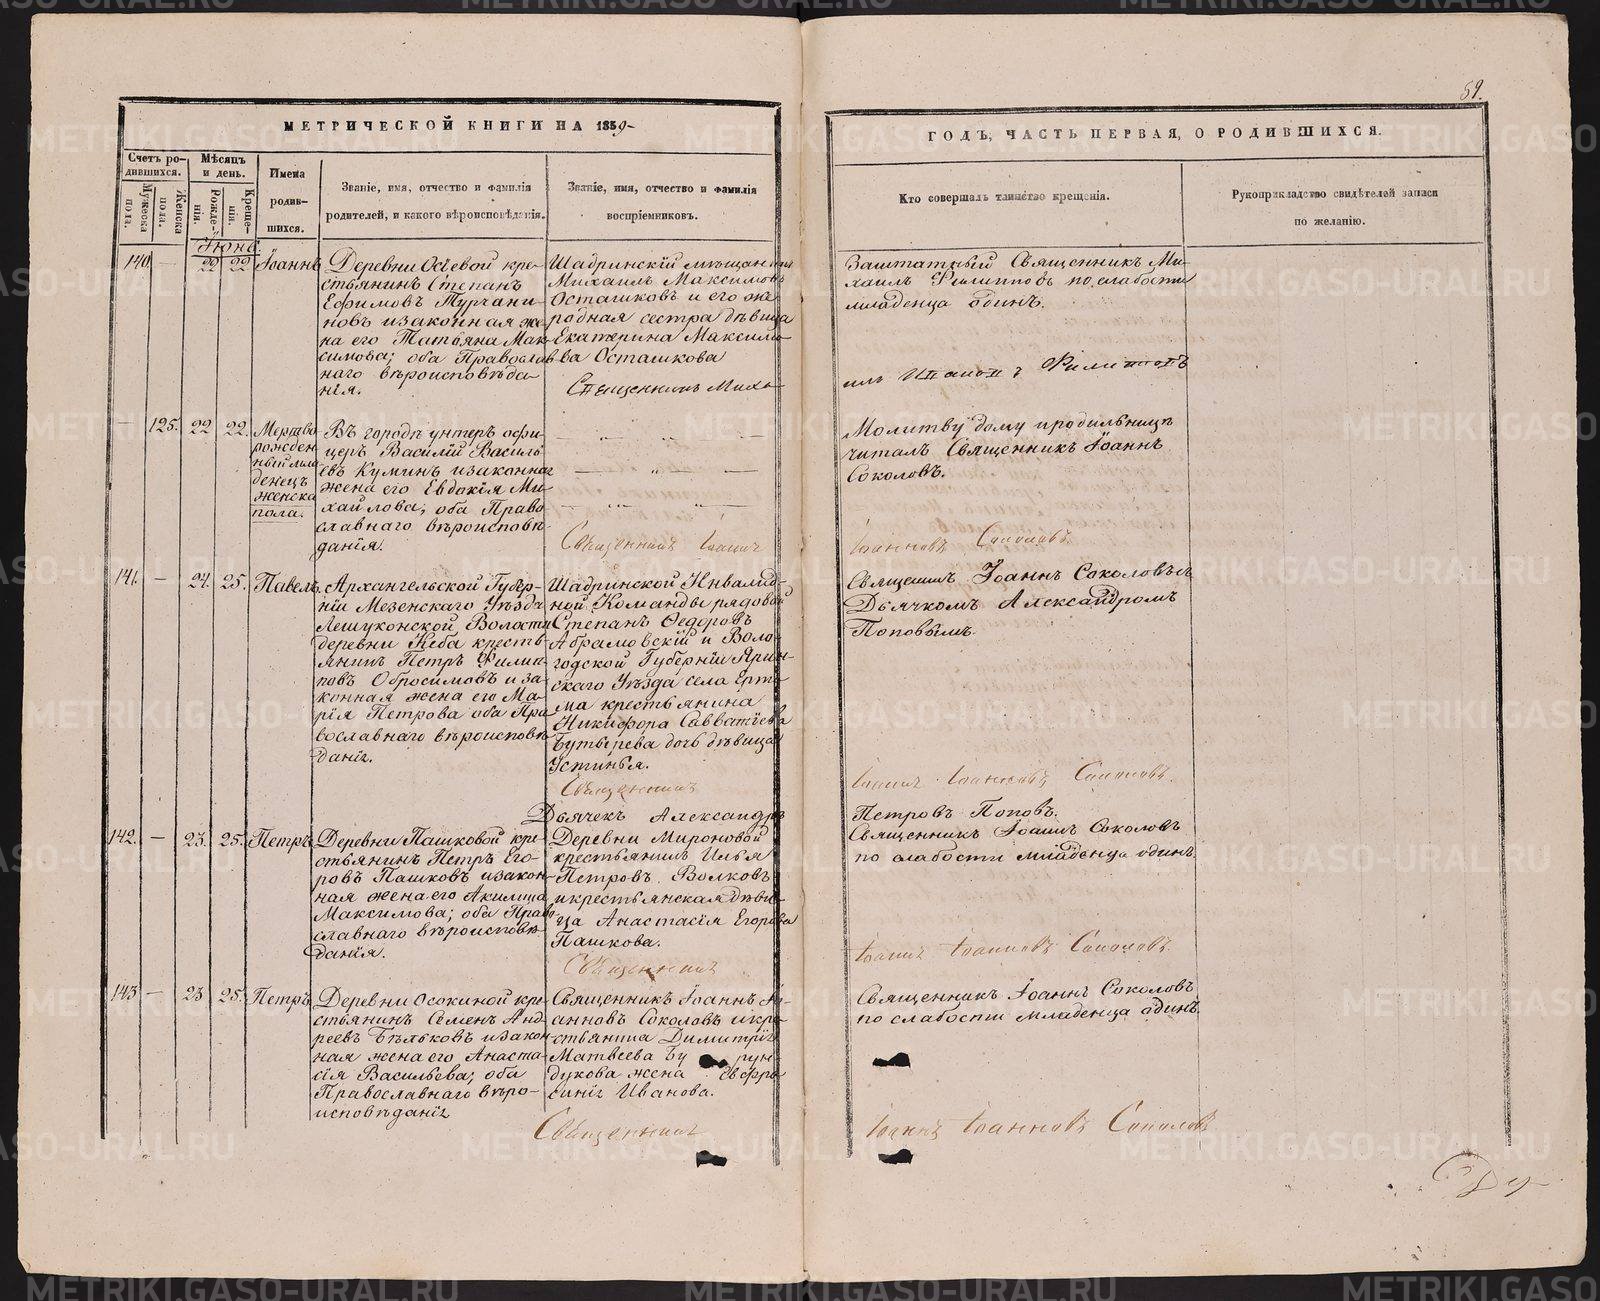 59.
МЕТРИЧЕСКОЙ КНИГИ НА 1859
ГОДЪ, ЧАСТЬ ПЕРВАЯ, О РОДИВШИХСЯ.
Счетъ родившихся.
Мужеска пола.
Женска пола.
Мѣсяцъ и день.
Рожденія.
Крещенія.
Имена родившихся.
Званіе, имя, отчество и фамилія
родителей, и какого вѣроисповѣданія.
Званіе, имя, отчество и фамилія
воспріемниковъ.
Кто совершалъ таинство крещенія.
Рукоприкладство свидѣтелей записи
по желанію.
Іюнь.
140 — 22 22 Іоаннъ
Деревни Осѣевой кре-
стьянинъ Степанъ
Ефимовъ Турчани-
новъ и законная же-
на его Татьяна Мак-
симова; оба Православ
наго вѣроисповѣда-
нія.
Шадринскій мѣщанинъ
Михаилъ Максимовъ
Осташковъ и его
родная сестра дѣвица
Екатерина Максимо
ва Осташкова
Заштатный Священникъ Ми-
хаилъ Филипповъ по слабости
младенца одинъ.
Священникъ Миха-
илъ Филипповъ
— 125. 22 22.
Мертво
рожден
ный мла
денецъ
женска
пола.
Въ городѣ унтеръ офи-
церъ Василій Василь
евъ Куминъ и законная
жена его Евдокія Ми-
хайлова, оба Право
славнаго вѣроисповѣ-
данія.
Молитву дому и родильницѣ
читалъ Священникъ Іоаннъ
Соколовъ.
Священникъ Іоаннъ
Іоанновъ Соколовъ.
141. — 24. 25. Павелъ.
Архангельской Губер-
ніи Мезенскаго Уѣзда
Лешуконской Волости
деревни Кеба кресть-
янинъ Петръ Филип
повъ Обросимовъ и за-
конная жена его Ма-
рія Петрова оба Пра
вославнаго вѣроисповѣ
данія.
Шадринской Инвалид-
ной Команды рядовой
Степанъ Федоровъ
Абрамовскій и Воло-
годской Губерніи Ярин-
скаго Уѣзда села Ерто-
ма крестьянина
Никифора Савватіева
Бутырева дочь дѣвица
Устинья.
Священникъ Іоаннъ Соколовъ съ
Дьячкомъ Александромъ
Поповымъ.
Священникъ
Іоаннъ Іоанновъ Соколовъ.
Дьячекъ Александръ
Петровъ Поповъ.
142. — 23. 25. Петръ.
Деревни Пашковой кре-
стьянинъ Петръ Его-
ровъ Пашковъ и закон-
ная жена его Акилина
Максимова; оба Право
славнаго вѣроисповѣ-
данія.
Деревни Мироновой
крестьянинъ Илья
Петровъ Волковъ
и крестьянская дѣви-
ца Анастасія Егорова
Пашкова.
Священникъ Іоаннъ Соколовъ
по слабости младенца одинъ.
Священникъ
Іоаннъ Іоанновъ Соколовъ.
143 — 23 25. Петръ
Деревни Осокиной кре-
стьянинъ Семенъ Анд-
реевъ Бѣльковъ и закон-
ная жена его Анаста-
сія Васильева; оба
Православнаго вѣро-
исповѣданія
Священникъ Іоаннъ Іо-
анновъ Соколовъ и кре-
стьянина Димитрія
Матвеева Бу рун-
дукова жена Евфро-
синія Иванова.
Священникъ Іоаннъ Соколовъ
по слабости младенца одинъ.
Священникъ
Іоаннъ Іоанновъ Соколовъ
METRIKI.GASO-URAL.RU